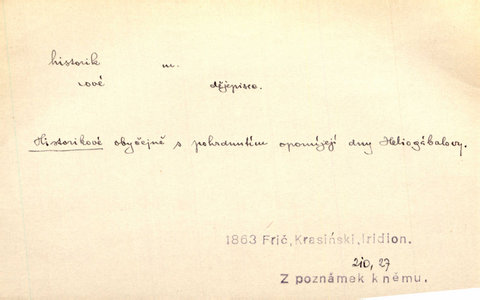 historik m.
-ové dějepisec.
Historikové obyčejně s pohrdnutím opomíjejí dny Heliogábalovy.
1863 Frič, Krasiński, Iridion.
210, 27
Z poznámek k němu.